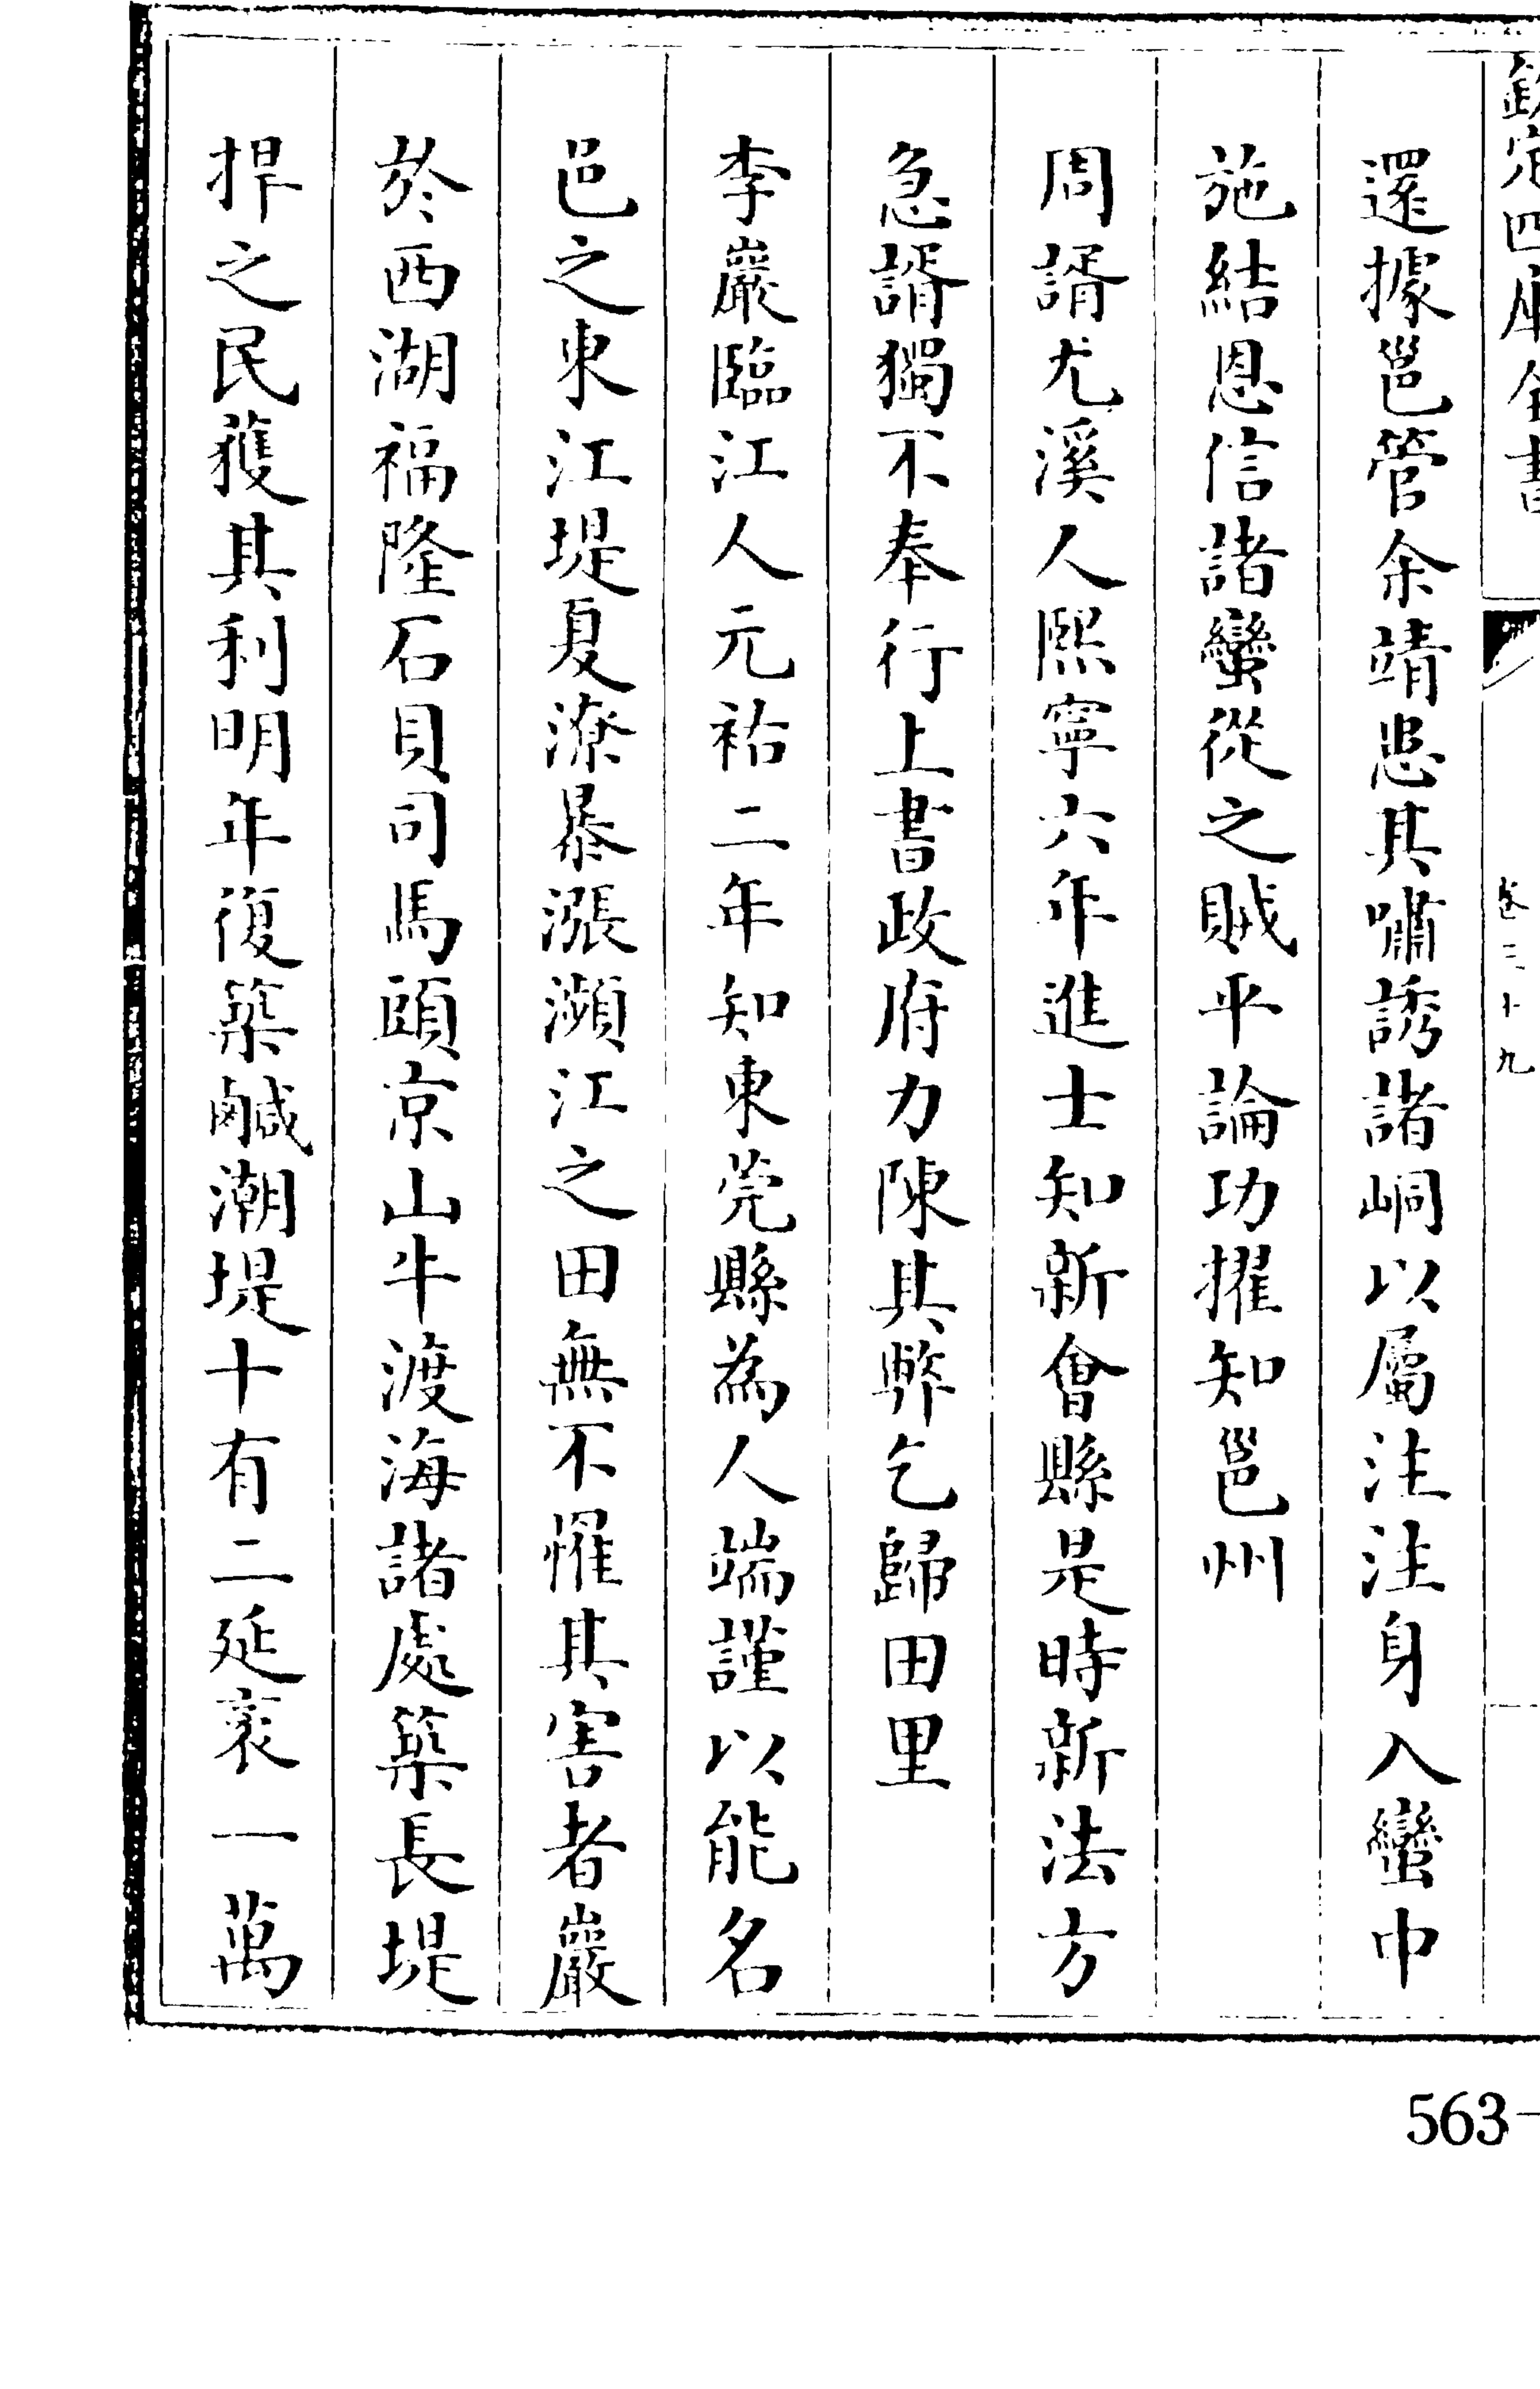 欽定四庫全書
卷三十九
還據邕管余靖患其嘯誘諸峒以屬注注身入蠻中
施結恩信諸蠻從之賊平論功擢知邕州
周諝尤溪人熙寧六年進士知新會縣是時新法方
急諝獨不奉行上書政府力陳其弊乞歸田里
李巖臨江人元祐二年知東莞縣為人端謹以能名
邑之東江堤夏潦暴漲瀕江之田無不懼其害者巖
於西湖福隆石貝司馬頭京山牛渡海諸處築長堤
捍之民獲其利明年復築鹹潮堤十有二延袤一萬
563-